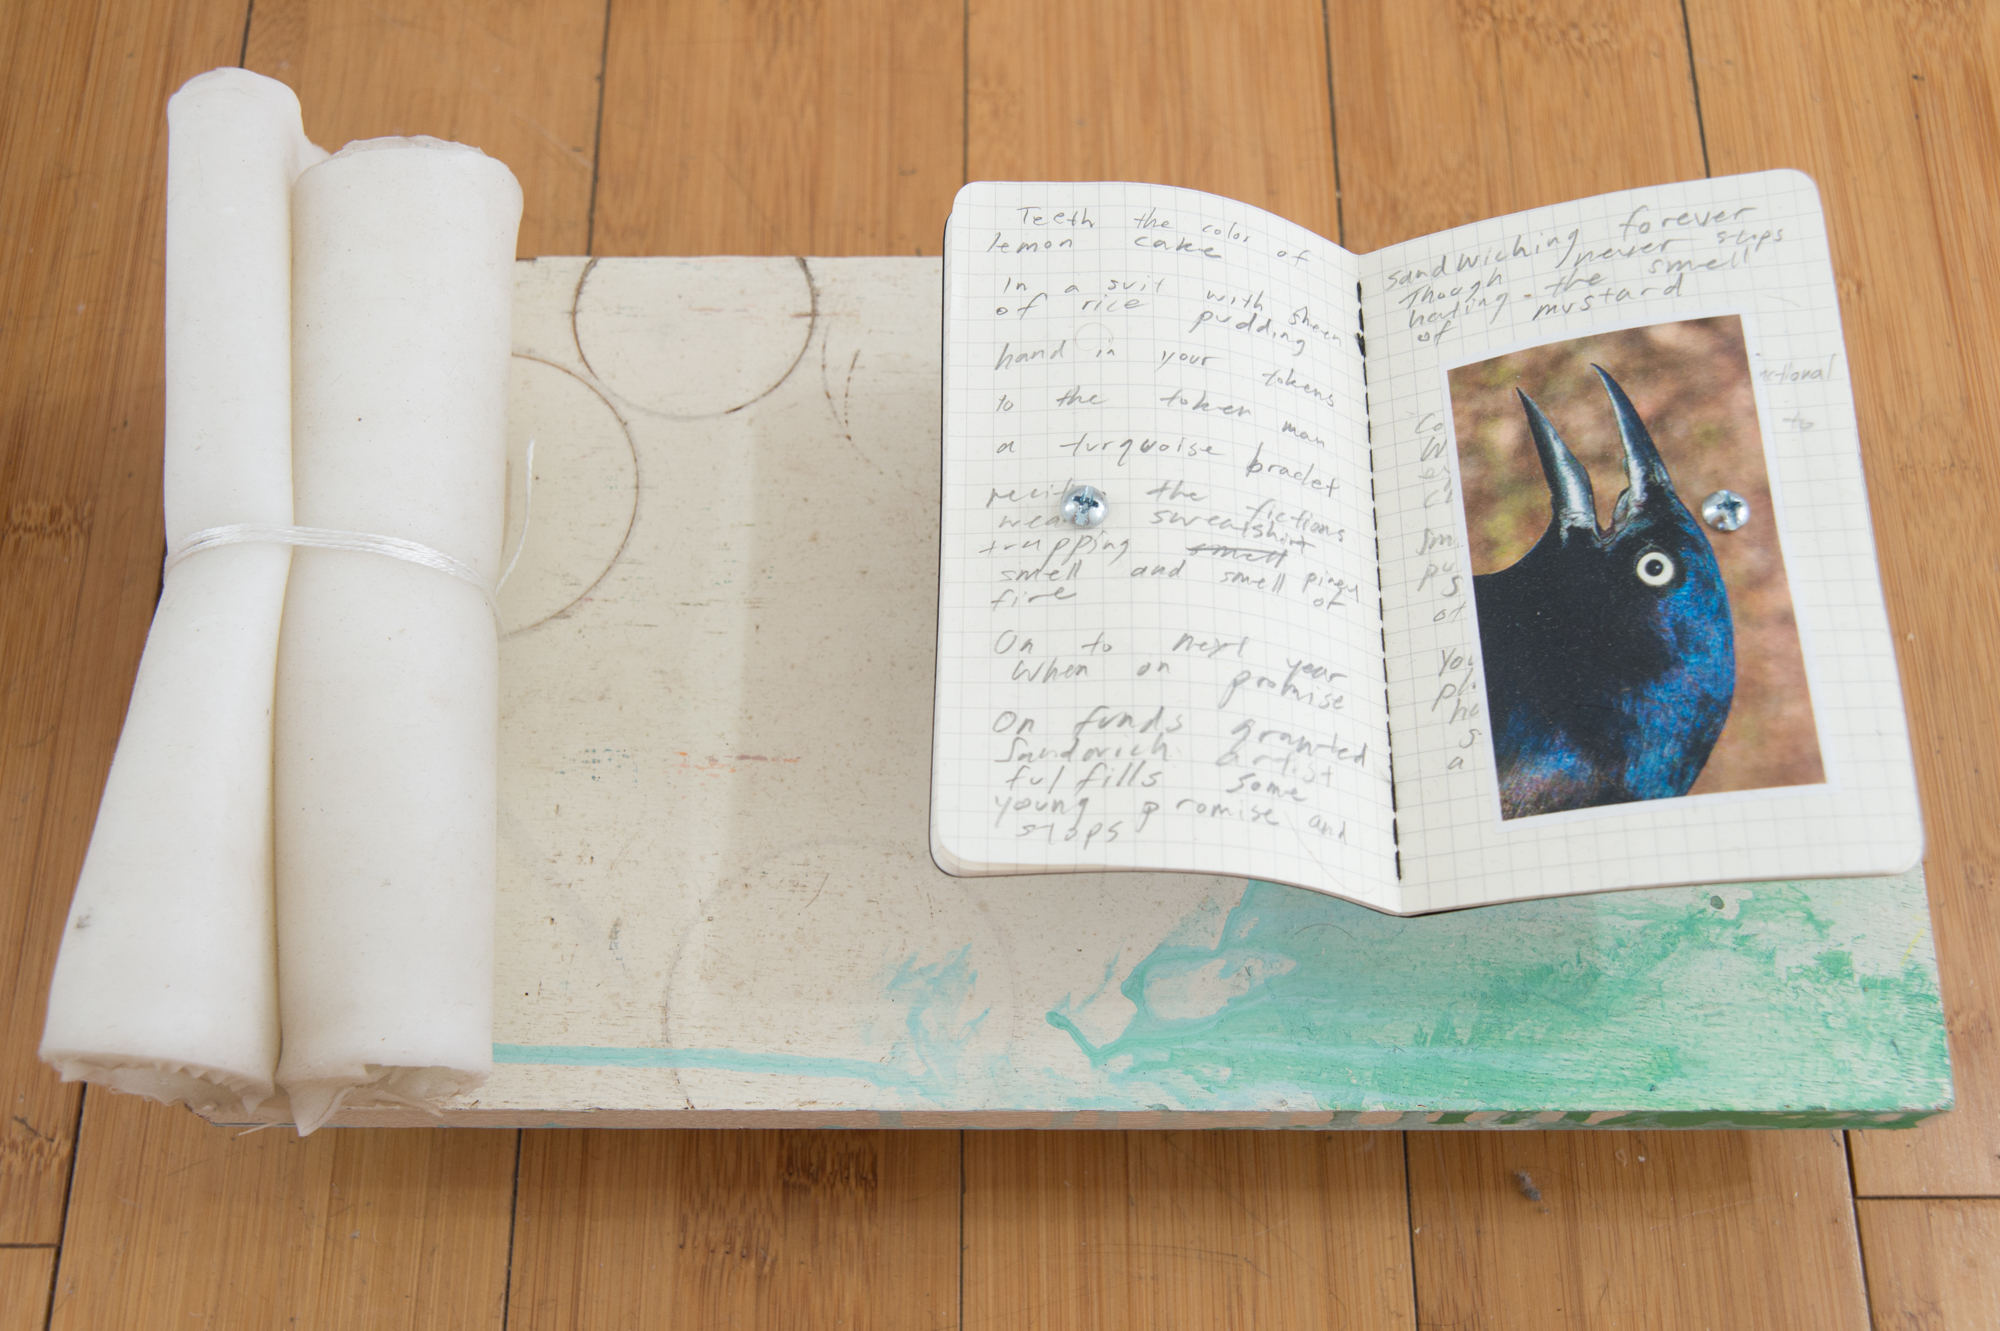 Teeth the color of
lemon cake
In a suit with sheen
of rice pudding
hand in your tokens
to the token man
a turquoise braclet
the fictions
sweatshirt
trapping smell
smell and smell
fire of
On to next year
When on promise
On funds granted
Sandwich artist
fulfills some
young promise and
stops
sandwiching forever
Though never stops
hating - the smell
of mustard
to